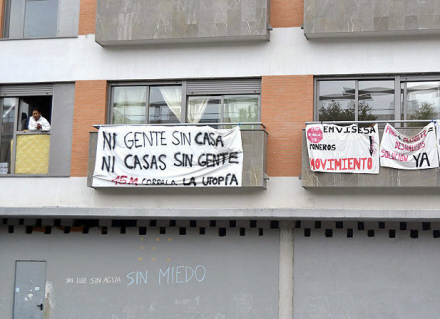 NI GENTE SIN CASA
NI CASAS SIN GENTE
15M CORRALA LA UTOPÍA
EMVISESA
MOVIMIENTO
SOLUCIÓN YA
SIN LUZ SIN AGUA SIN MIEDO